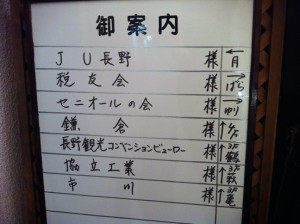 御案内
JU長野 様 ← 月
税友会 様 → ばら
セニオールの会 様 → ゆり
鎌倉 様 ↑
長野観光コンベンションビューロー 様 ↑ 2F 鶴
協立工業 様 ↑ 2F
市川 様 ↑ 2F 竜